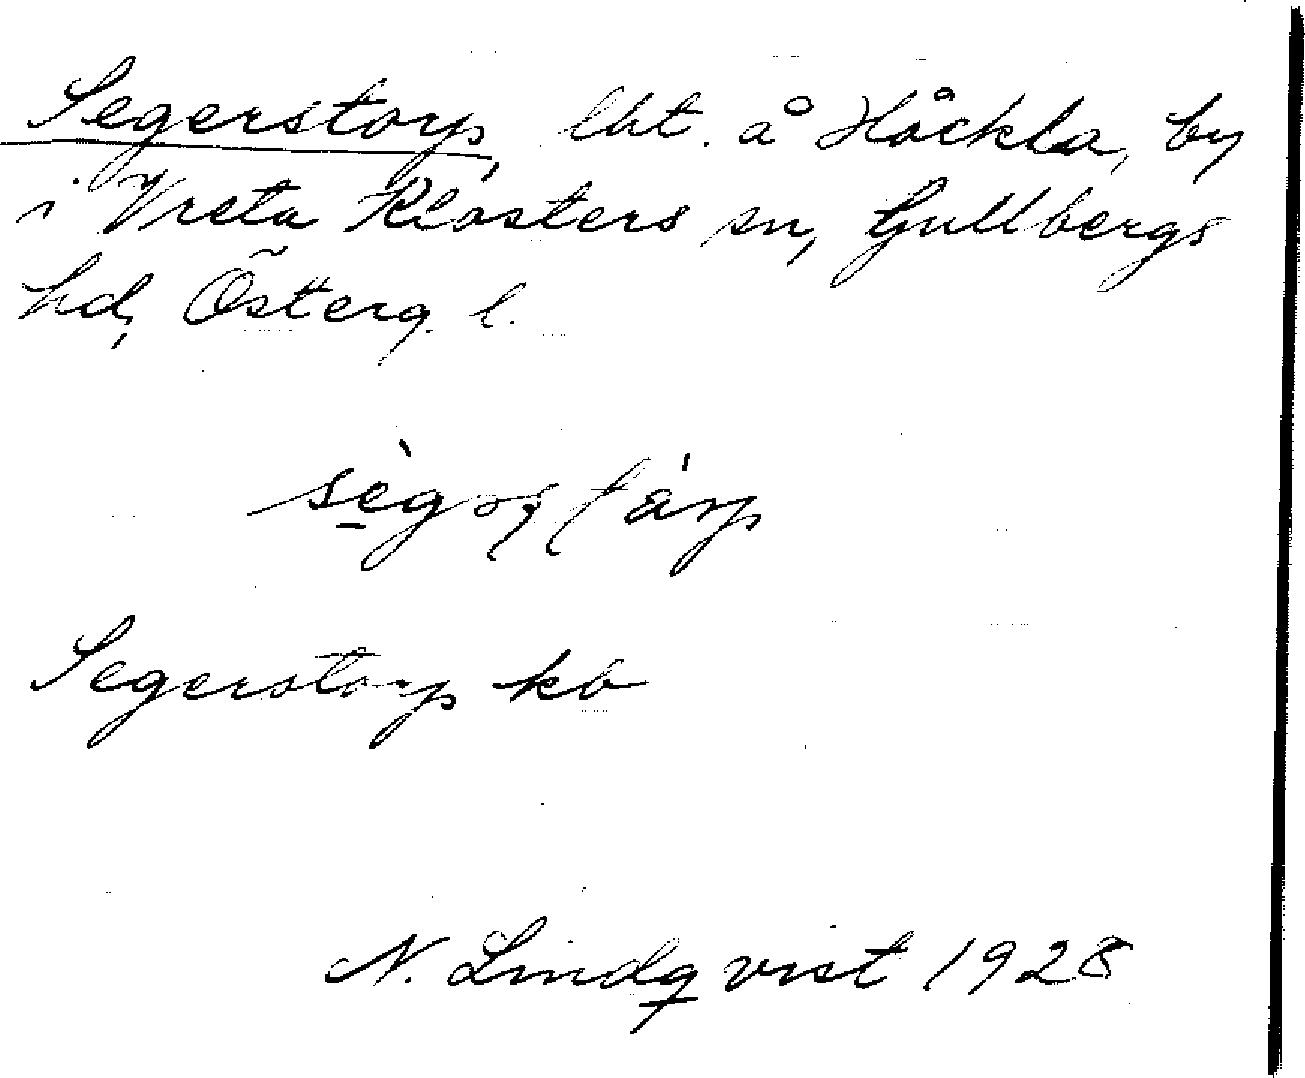 Segerstorp, lht. å Håckla, by
i Vreta Klosters sn, Gullbergs
hd, Österg. l.
Segerstorp kb
N. Lindqvist 1928